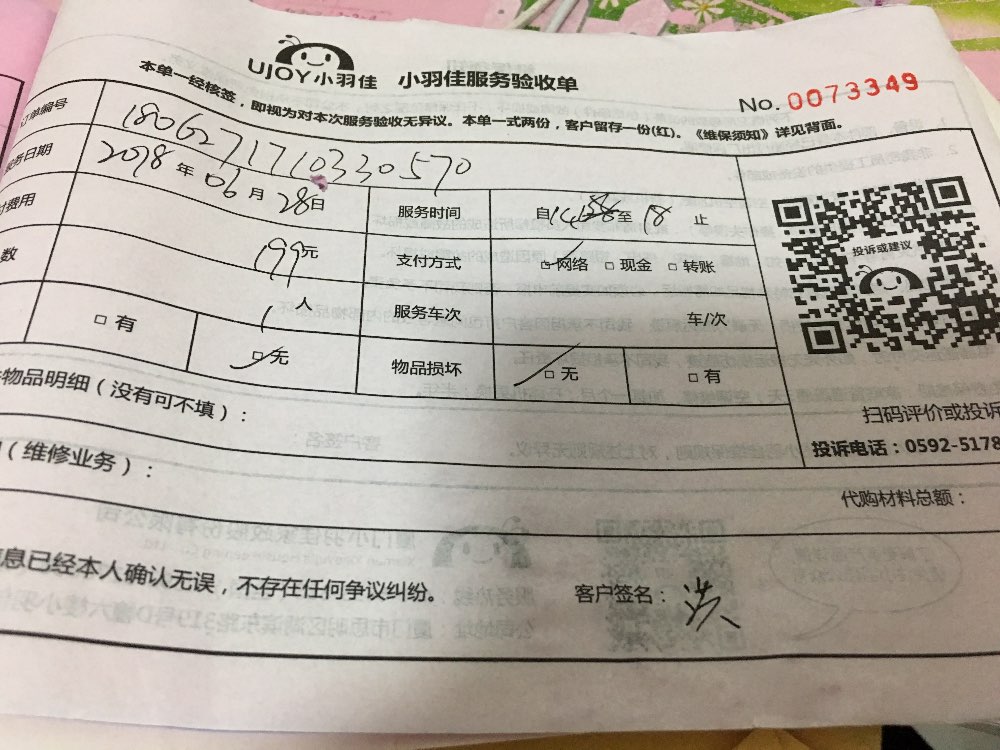 UJOY小羽佳 小羽佳服务验收单
No. 0073349
本单一经核签，即视为对本次服务验收无异议。本单一式两份，客户留存一份(红)。《维保须知》详见背面。
订单编号 1806271710330570
务日期 2018年06月28日 服务时间 自14 至18止
费用 199元 支付方式 □网络 □现金 □转账
数 1人 服务车次 车/次
□有 □无 物品损坏 □无 □有
投诉或建议
扫码评价或投诉
投诉电话：0592-5178
物品明细（没有可不填）：
（维修业务）：
代购材料总额：
息已经本人确认无误，不存在任何争议纠纷。
客户签名：